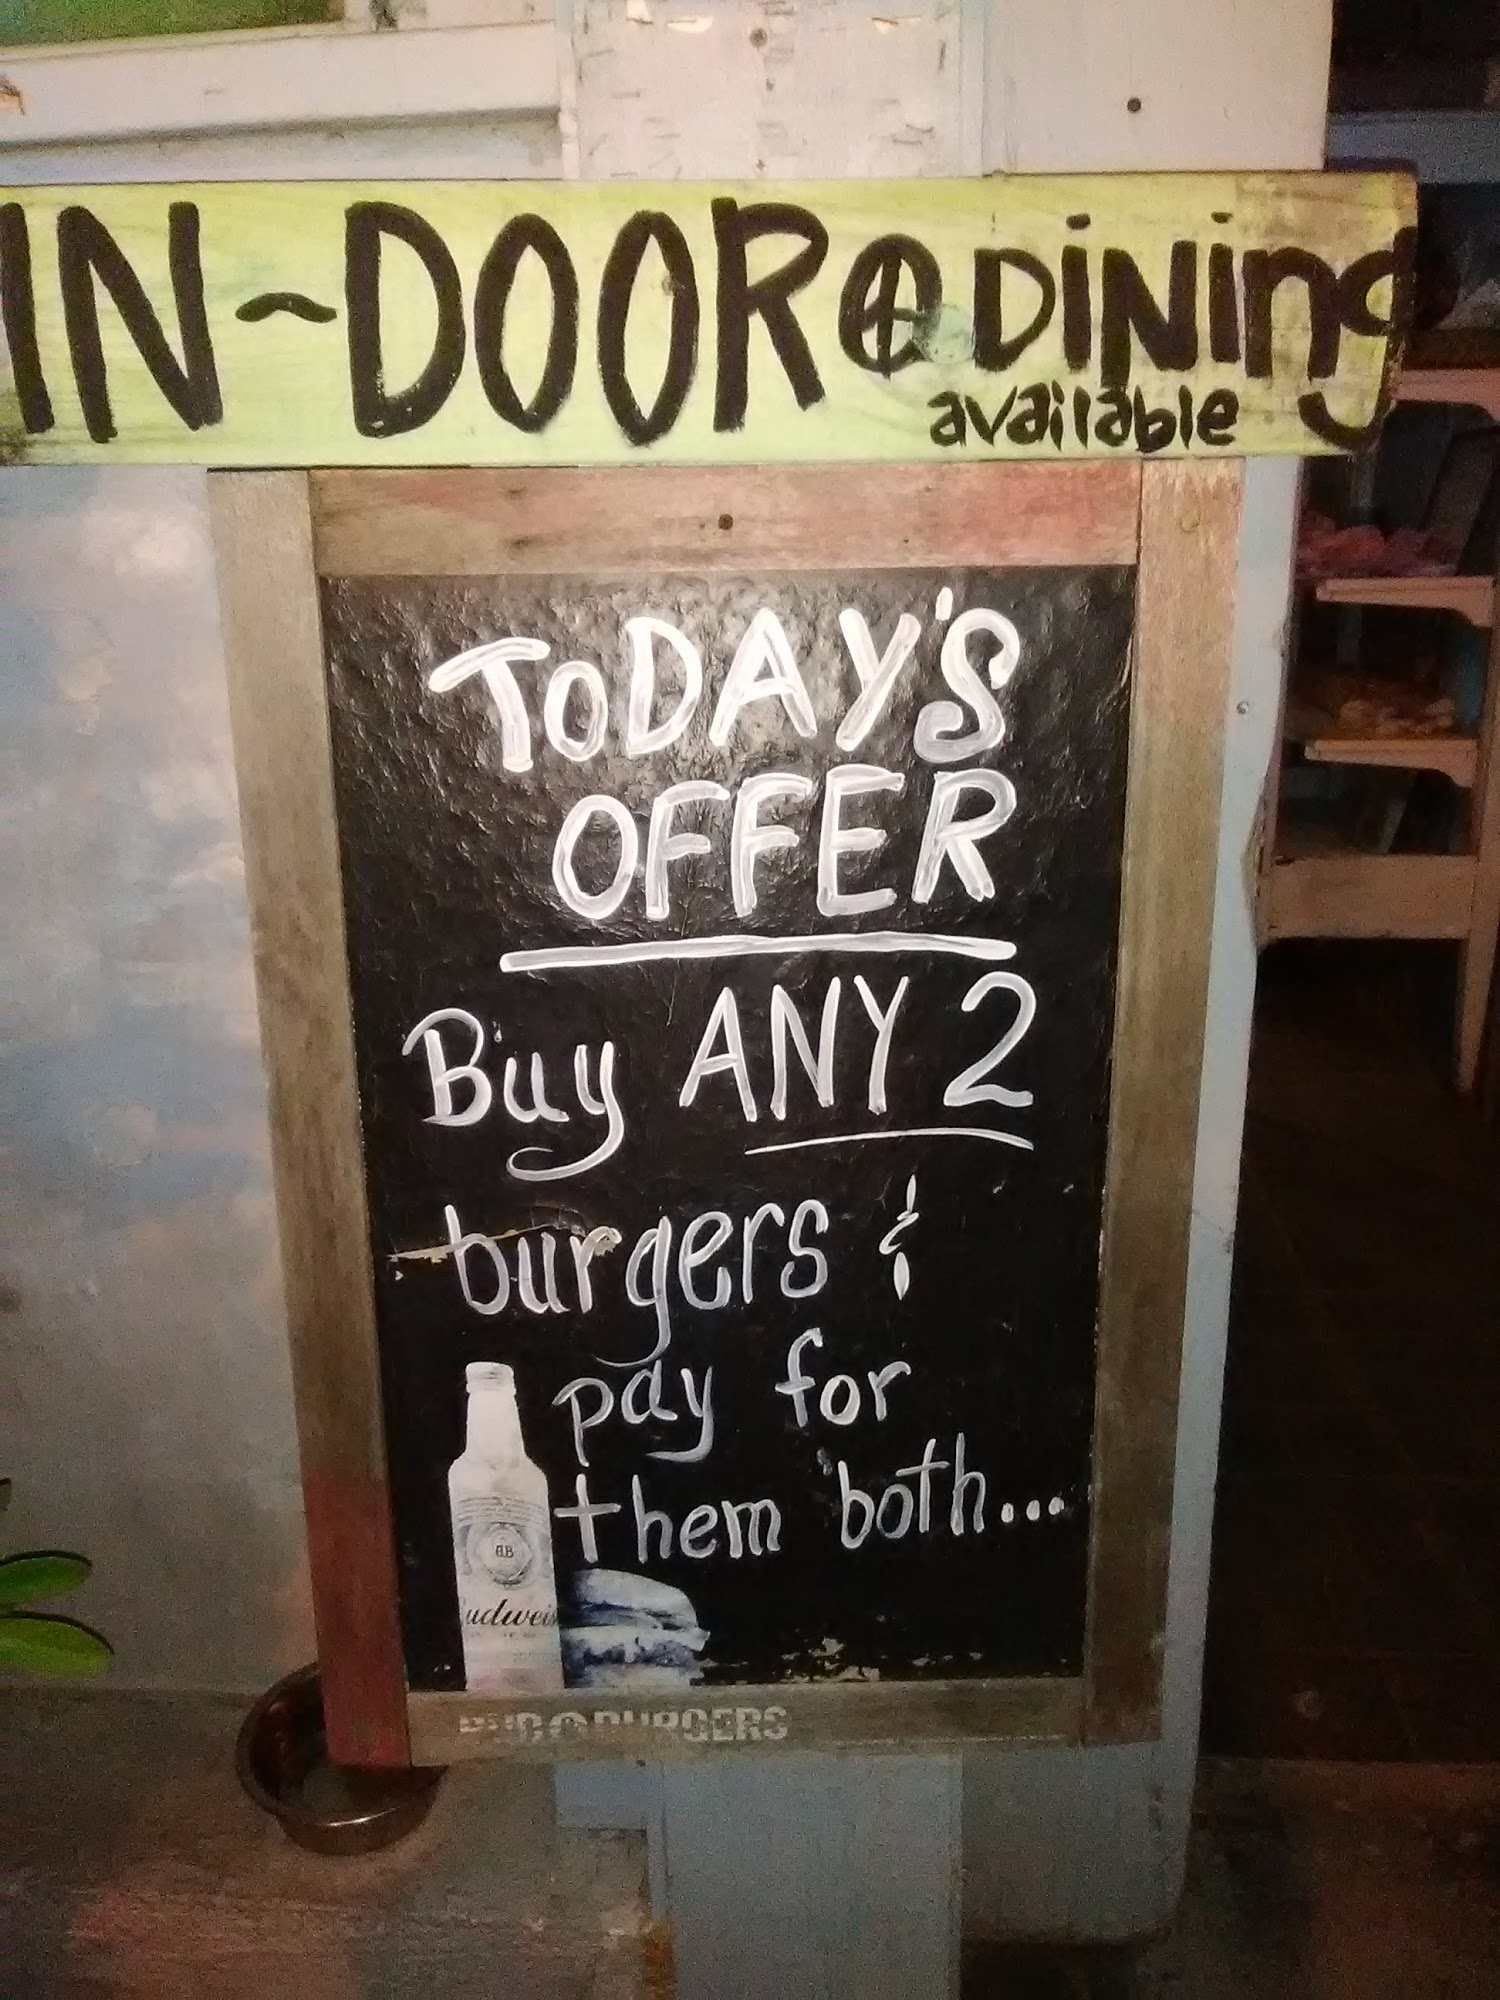 IN~DOOR DINING
available
TODAY'S
OFFER
Buy ANY 2
burgers &
pay for
them both...
AB
BURGERS